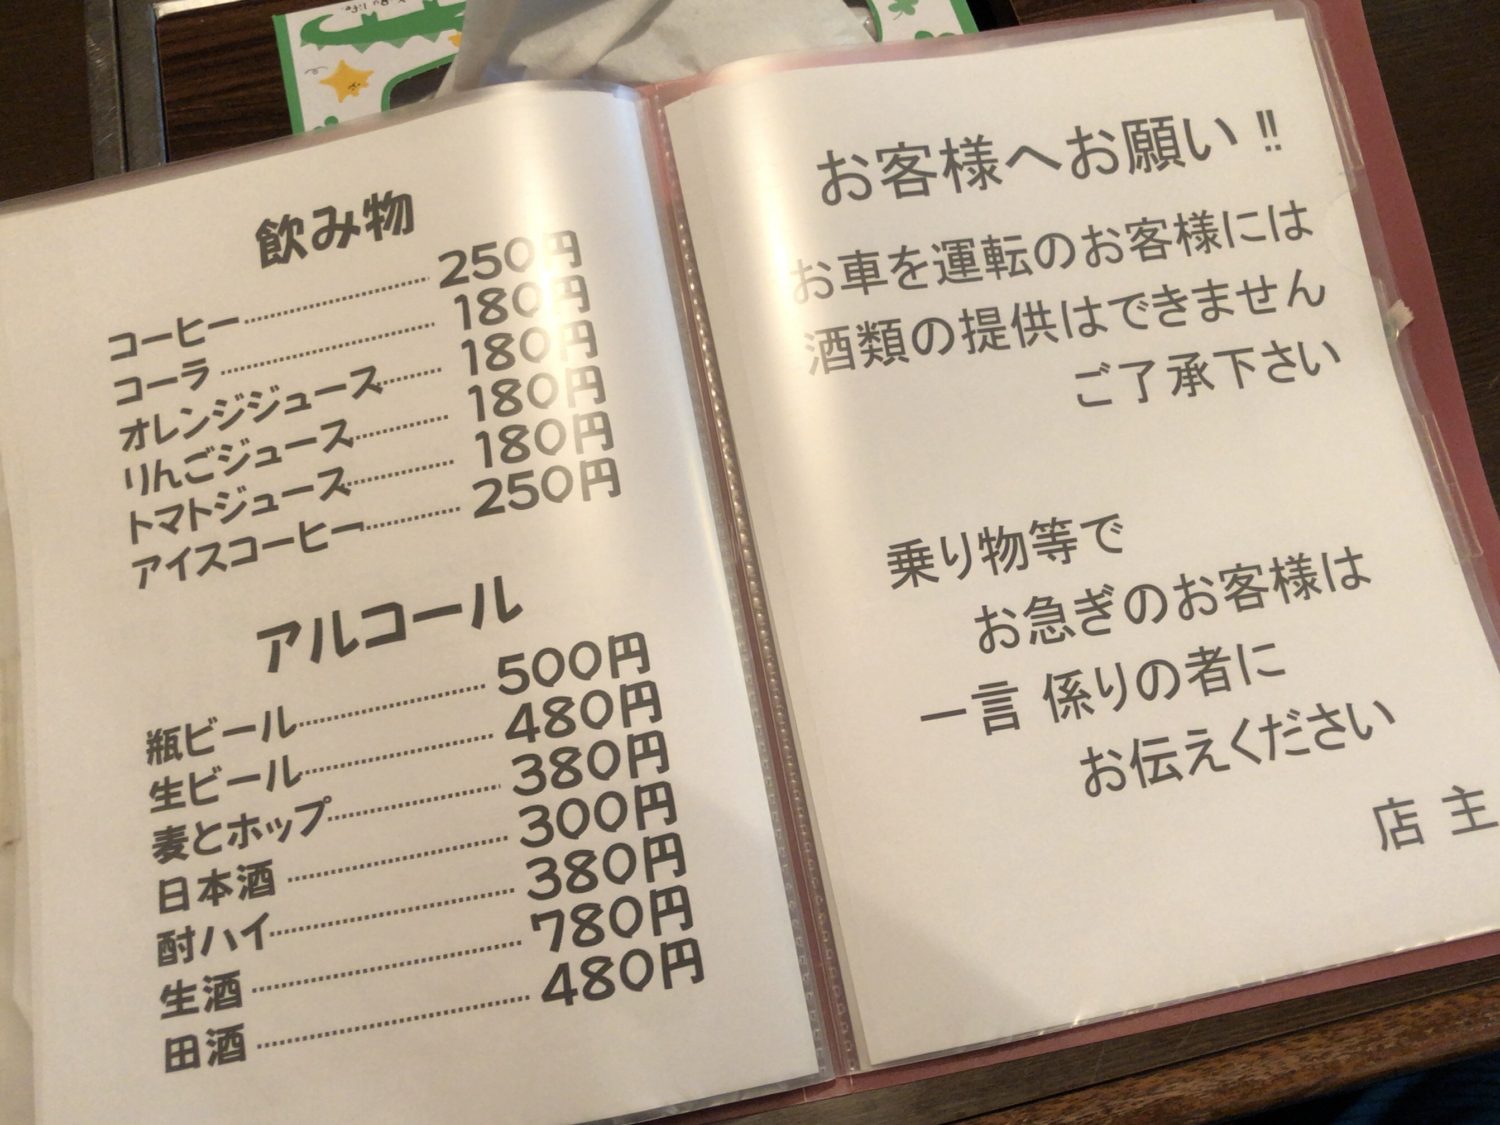 飲み物
コーヒー 250円
コーラ 180円
オレンジジュース 180円
りんごジュース 180円
トマトジュース 180円
アイスコーヒー 250円
アルコール
瓶ビール 500円
生ビール 480円
麦とホップ 380円
日本酒 300円
酎ハイ 380円
生酒 780円
田酒 480円
お客様へお願い!!
お車を運転のお客様には
酒類の提供はできません
ご了承下さい
乗り物等で
お急ぎのお客様は
一言 係りの者に
お伝えください
店 主